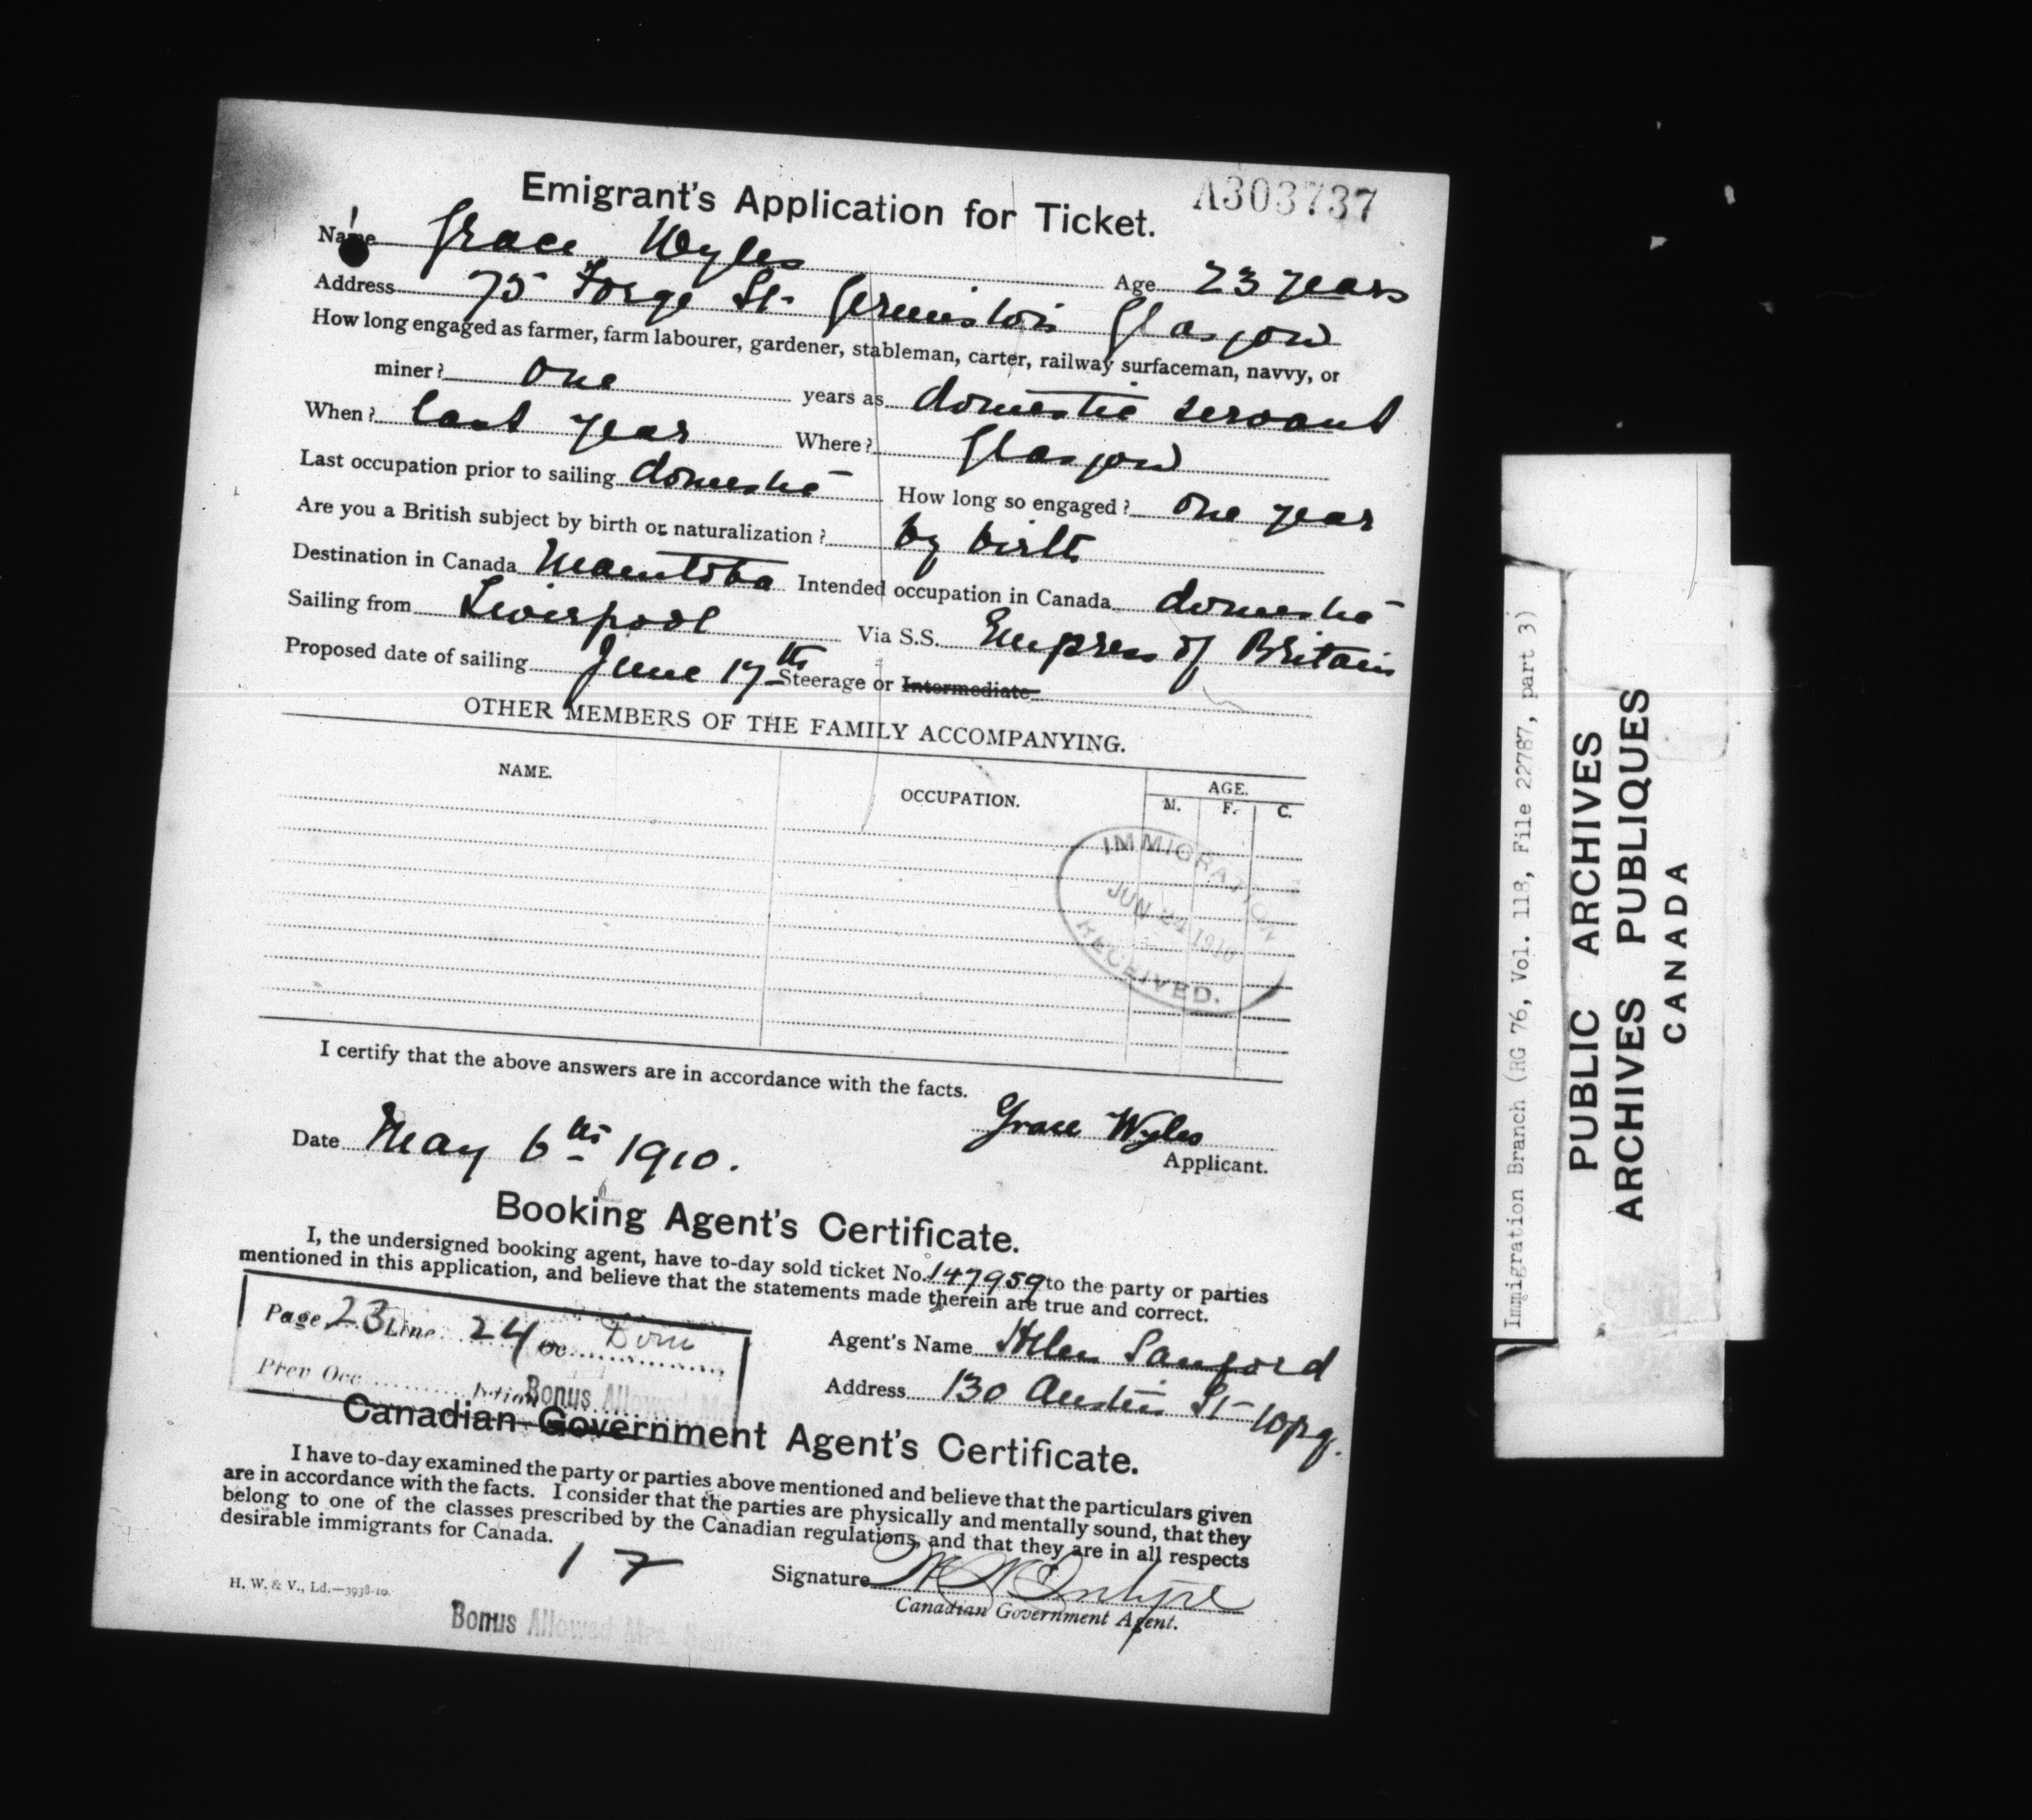 Emigrant's Application for Ticket. A303737
Name Grace Wyles Age 23 years
Address 75 Forge St. Germiston Glasgow
How long engaged as farmer, farm labourer, gardener, stableman, carter, railway surfaceman, navvy, or
miner? One years as domestic servant
When? last year Where? Glasgow
Last occupation prior to sailing domestic How long so engaged? One year
Are you a British subject by birth or naturalization? by birth
Destination in Canada Manitoba Intended occupation in Canada domestic
Sailing from Liverpool Via S.S. Empress of Britain
Proposed date of sailing June 17th Steerage or Intermediate
OTHER MEMBERS OF THE FAMILY ACCOMPANYING.
NAME. OCCUPATION. AGE.
M. F. C.
IMMIGRATION
JUN 24 1910
RECEIVED.
I certify that the above answers are in accordance with the facts.
Grace Wyles
Date May 6th 1910. Applicant.
Booking Agent's Certificate.
I, the undersigned booking agent, have to-day sold ticket No. 147959 to the party or parties
mentioned in this application, and believe that the statements made therein are true and correct.
Page 23 Line 24 Oc Dom
Prev Occ
Bonus Allowed
Agent's Name Helen Sanford
Address 130 Austin St Wpg.
Canadian Government Agent's Certificate.
I have to-day examined the party or parties above mentioned and believe that the particulars given
are in accordance with the facts. I consider that the parties are physically and mentally sound, that they
belong to one of the classes prescribed by the Canadian regulations, and that they are in all respects
desirable immigrants for Canada.
17
Signature
Canadian Government Agent.
H. W. & V., Ld.—3938-10.
Bonus Allowed Mrs.
Immigration Branch (RG 76, Vol. 118, File 22787, part 3)
PUBLIC ARCHIVES
ARCHIVES PUBLIQUES
CANADA